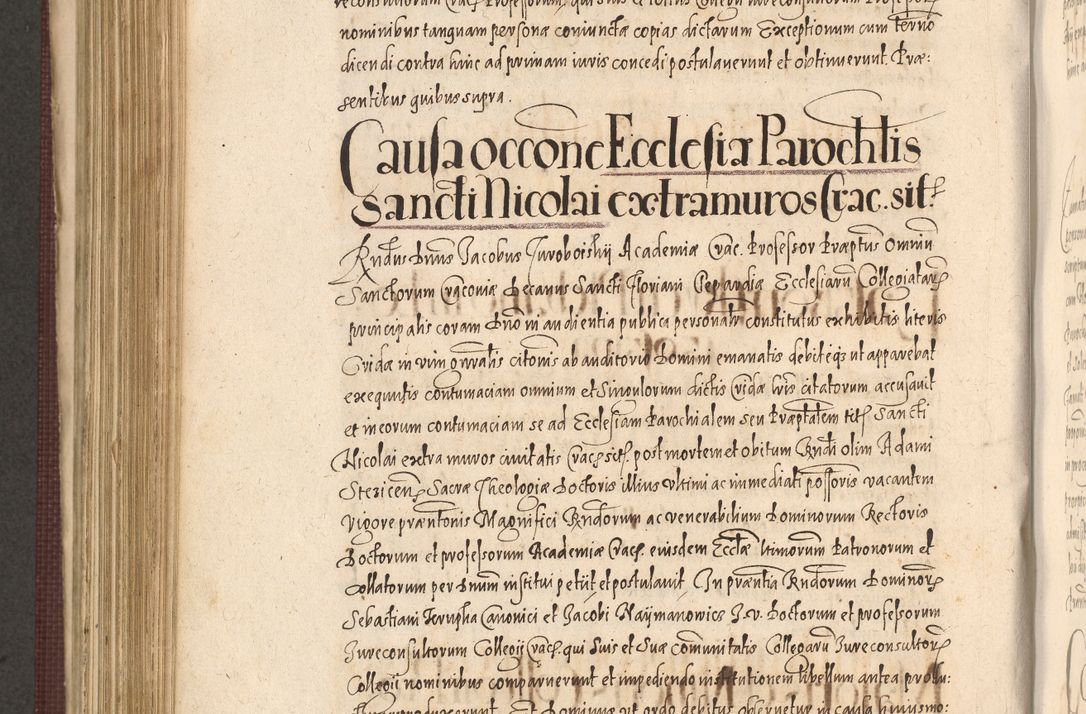 nominibus tanquam personæ coniunctæ copias dictarum Exceptionum cum termo
dicendi contra hinc ad primam iuris concedi postulaverunt et obtinuerunt. Præ:
sentibus quibus supra.
Causa occone Ecclesiæ Parochlis
Sancti Nicolai extra muros Crac. sit.
Rndus Dnus Jacobus Academiæ Crac. Professor Præptus Omniū
Sanctorum Cracoviæ Decanus Sancti Floriani Ecclesiarū Collegiatarꝝ
principalis coram Dno in audientia publica personalr constitutus exhibitis literis
Cridæ in vim gnralis citonis ab auditorio Domini emanatis debiteqs ut apparebat
exequutis contumaciam omnium et Singulorum dictis Cridæ lris citatorum accusavit
et in eorum contumaciam se ad Ecclesiam Parochialem seu Præptalem titꝭ Sancti
Nicolai extra muros civitatis Cracꝭ sitꝭ post mortem et obitum Rndi olim Adami
Sacræ Theologiæ Doctoris illius ultimi ac immediati possoris vacantem
Vigore præntonis Magnifici Rndorum ac venerabilium Dominorum Rectoris
Doctorum et professorum Academiæ Cracꝭ eiusdem Ecclæ ltimorum Patronorum et
collatorum per Dnum institui petiit et postulavit. In præntia Rndorum Dominorꝝ
Sebastiani Krupka Canonici et Jacobi Naÿmanowicz J.V. Doctorum et professorum
Jureconsultorum Collegij Cracꝭ qui Suis et Suæ cōmunitatis Collegarū Jureconsultorꝝ
Collegij nominibus comparuerunt et impediendo institutionem libellum antea produ: